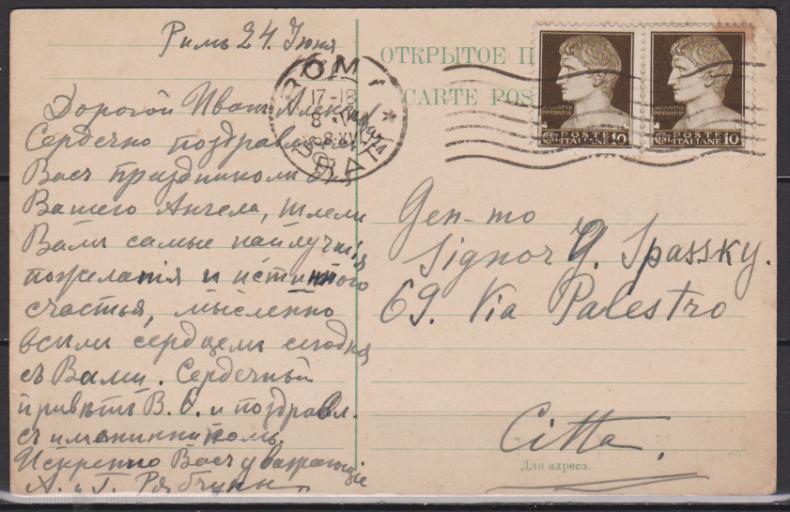 Римъ 24. Іюня
Дорогой Иванъ Алекса
Сердечно поздравляемъ
Васъ праздникомъ дня
Вашего Ангела, шлемъ
Вамъ самые наилучшія
пожеланія и истиннаго
счастья, мысленно
всѣмъ сердцемъ сегодня
съ Вами. Сердечный
привѣтъ В. С. и поздравл.
съ именинникомъ.
Искренно Васъ уважающіе
А. и Г. Рябчун
ОТКРЫТОЕ П
CARTE POS
ROMA
17-18
8
XV
POSTE
ITALIANE
10
POSTE
ITALIANE
10
Gen-mo
Signor Y. Spassky.
69. Via Palestro
Citta.
Для адреса.